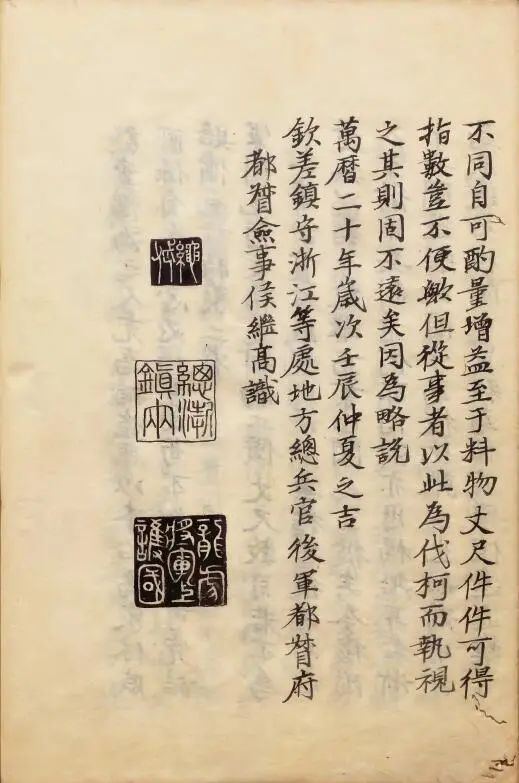 不同自可酌量增益至于料物丈尺件件可得
指數豈不便歟但從事者以此為伐柯而執視
之其則固不遠矣因為略説
萬曆二十年嵗次壬辰仲夏之吉
欽差鎮守浙江等處地方總兵官後軍都督府
都督僉事侯繼高識
龍虎將軍上護國